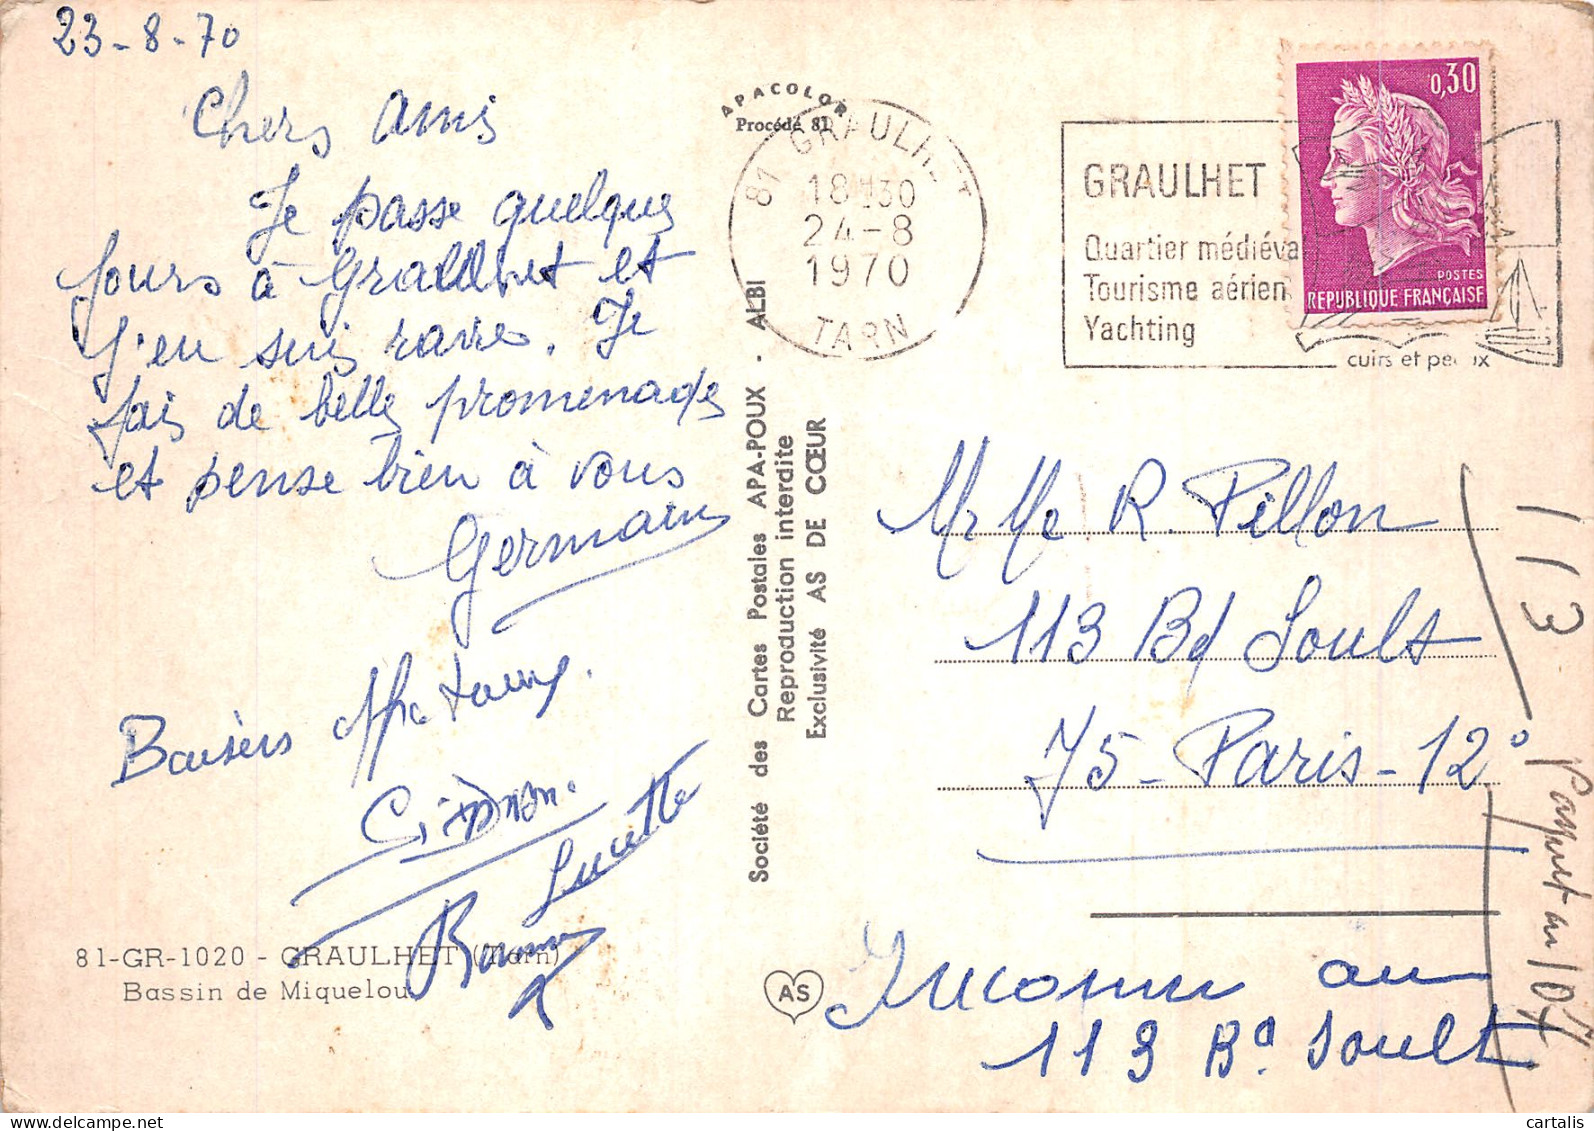 23-8-70
Chers Amis
Je passe quelques
jours à Graulhet et
j'en suis ravie. Je
fais de belles promenades
et pense bien à vous
Germaine
Baisers affectueux.
Simone.
Lucette
81-GR-1020 - GRAULHET (Tarn)
Bassin de Miquelou
APACOLOR
Procédé 81
Société des Cartes Postales APA-POUX - ALBI
Reproduction interdite
Exclusivité AS DE CŒUR
AS
81 GRAULHET
18H30
24-8
1970
TARN
GRAULHET
Quartier médiéva
Tourisme aérien
Yachting
cuirs et pe ux
0,30
POSTES
REPUBLIQUE FRANÇAISE
Mr Me R. Pillon
113 Bd Soult
75-Paris-12°
Inconnu au
113 Bd Soult
113
au 107
cartalis
www.delcampe.net